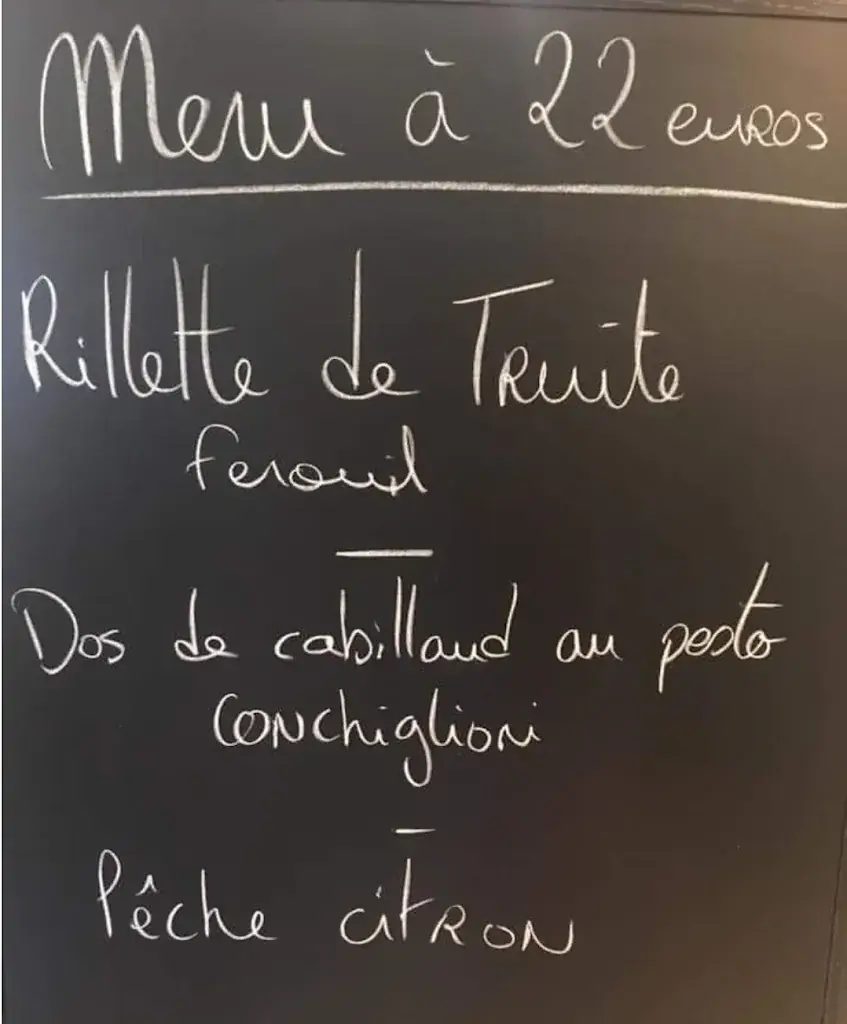 Menu à 22 euros
Rillette de Truite
fenouil
Dos de cabillaud au pesto
conchiglioni
Pêche citron